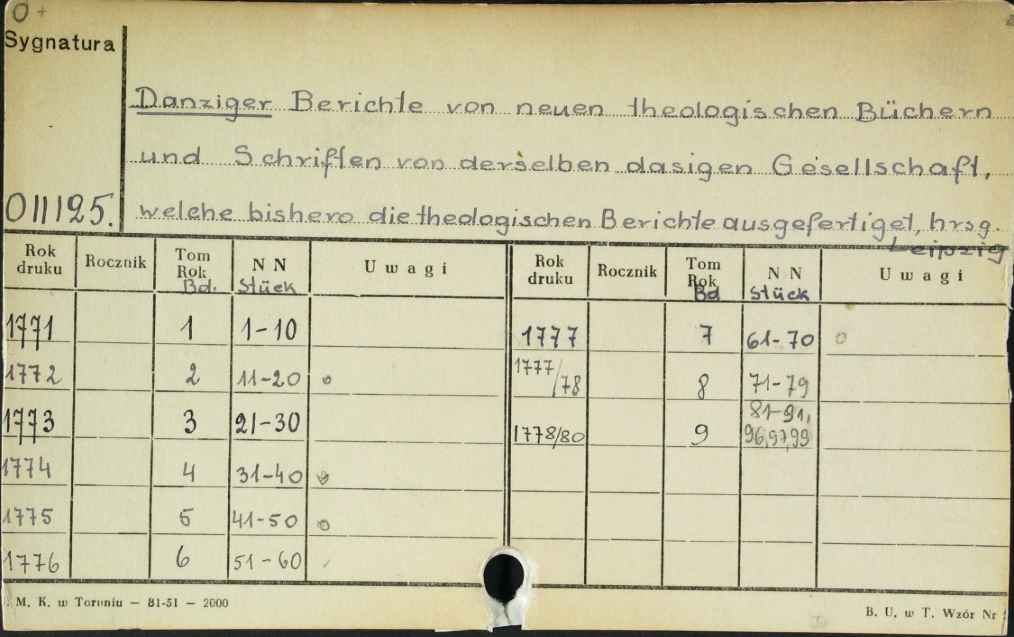 O+
Sygnatura
Danziger Berichte von neuen theologischen Büchern
und Schriften von derselben dasigen Gesellschaft,
O11125. welche bishero die theologischen Berichte ausgefertiget, hrsg.
Leipzig
Rok druku Rocznik Tom Rok Bd. N N Stück Uwagi Rok druku Rocznik Tom Rok Bd N N Stück Uwagi
1771 1 1-10 1777 7 61-70 o
1772 2 11-20 o 1777/78 8 71-79
1773 3 21-30 1778/80 9 81-91, 96,97,99
1774 4 31-40
1775 5 41-50 o
1776 6 51-60
M. K. w Toruniu — 81-51 — 2000
B. U. w T. Wzór Nr